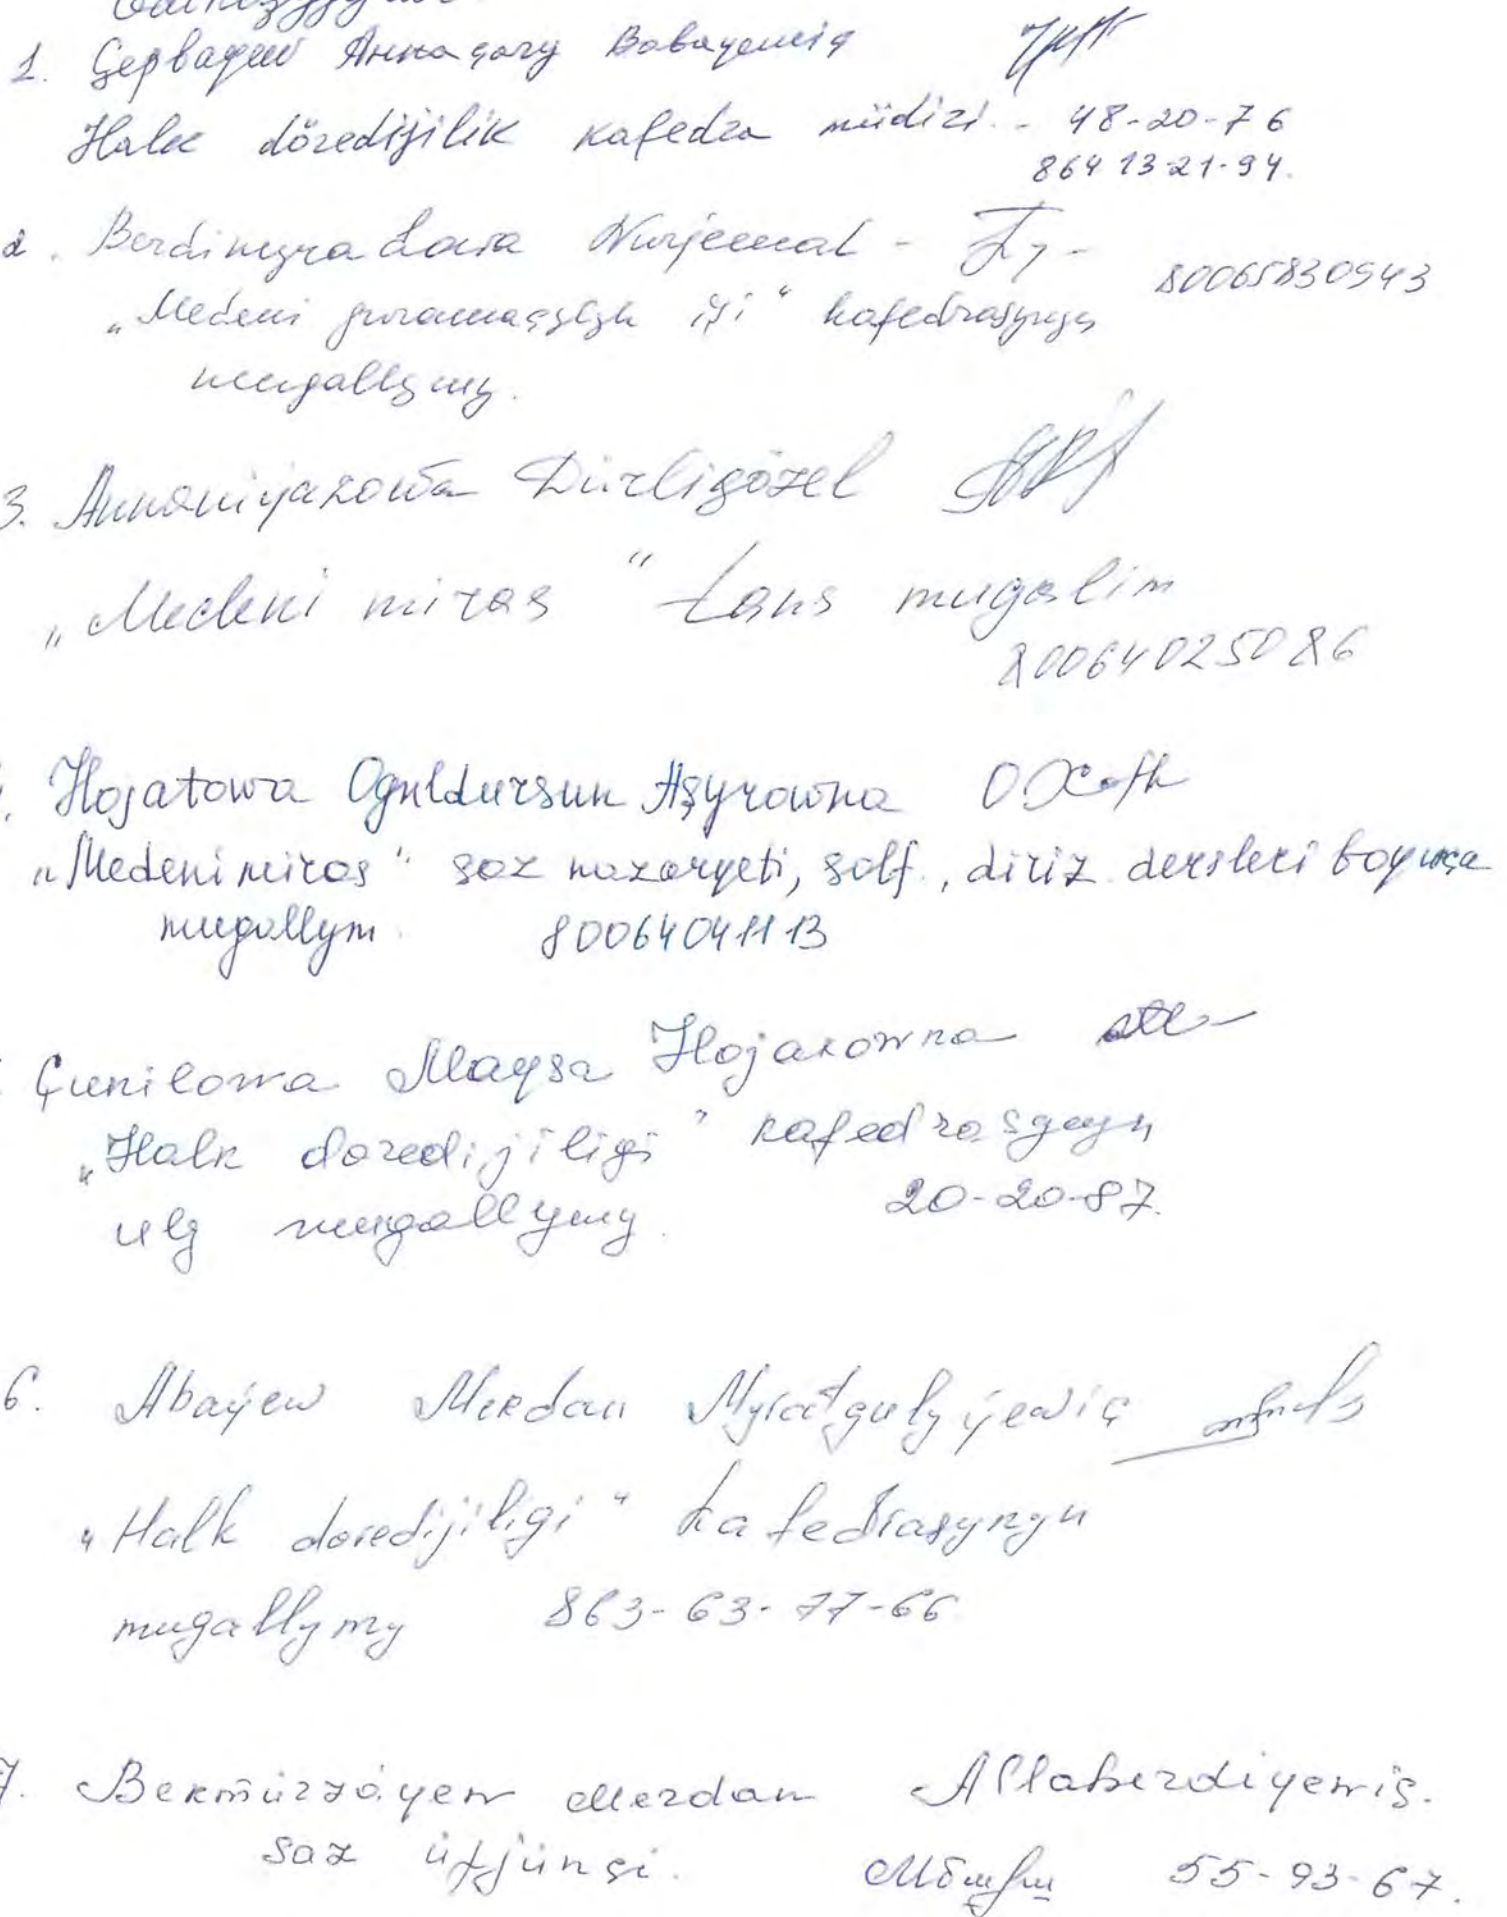 1. Annagary Babaýewiç
Halk döredijilik kafedra müdiri - 48-20-76
864 13-21-94.
2. Berdimyradowa Nurjemal - 80065830943
„Medeni guramaçylyk işi“ kafedrasynyň
mugallymy.
3. Annanyýazowa Dürligözel
„Medeni miras“ tans mugalim
80064025086
Hojatowa Oguldursun Aşyrowna
„Medeni miras“ saz nazaryýeti, solf., diriž. dersleri boýunça
mugallym. 80064041113
Maysa Hojarowna
„Halk doredijiligi” kafedrasynyň
uly mugallymy. 20-20-87.
6. Abaýew Merdan Myratgulyýewiç
„Halk doredijiligi“ kafedrasynyn
mugallymy 863-63-77-66
7. Bekmürzaýew Merdan Allaberdiyewiç.
saz üpjünçi. 55-93-67.